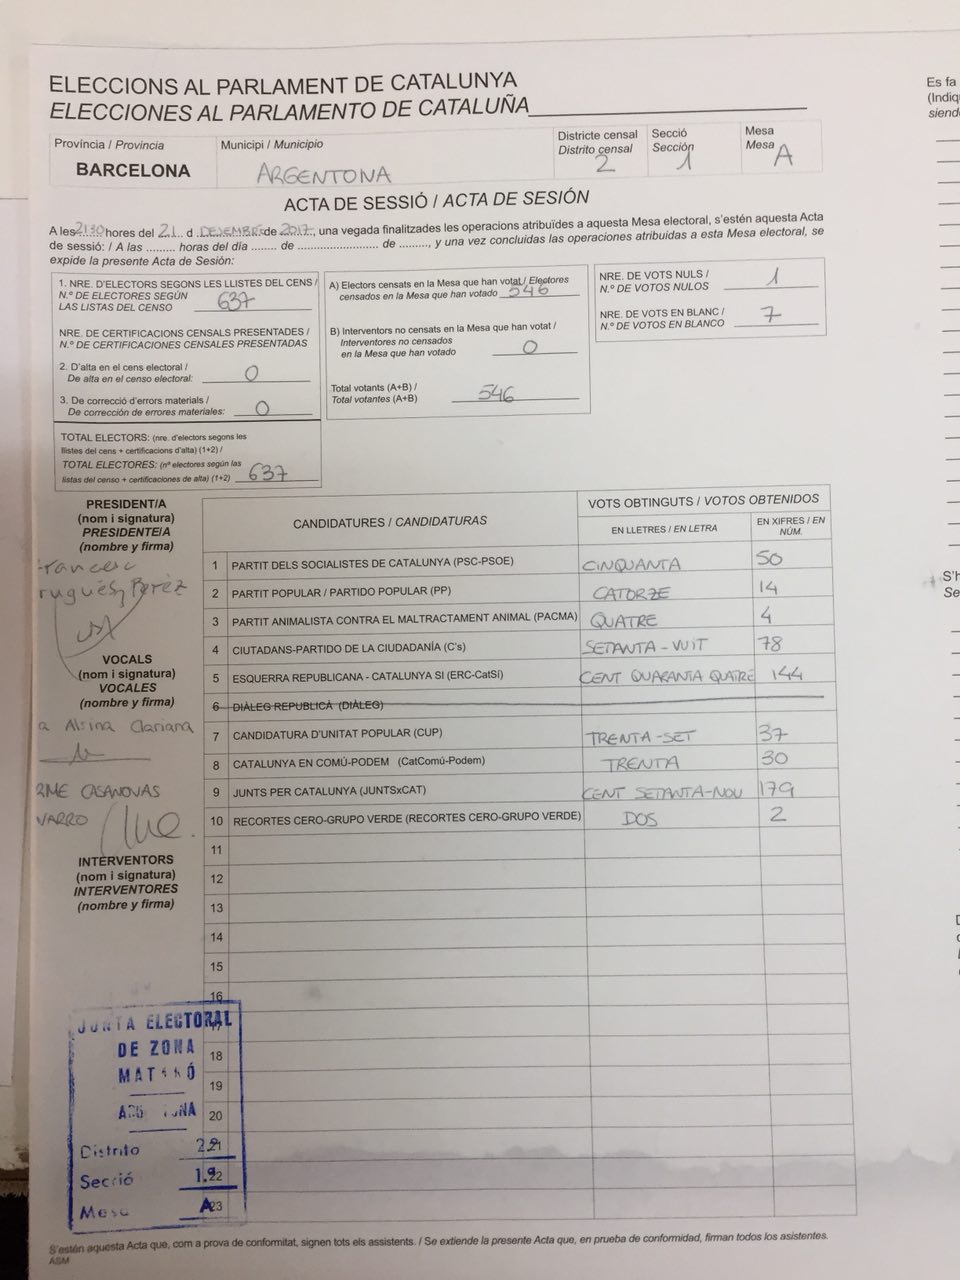 ELECCIONS AL PARLAMENT DE CATALUNYA
ELECCIONES AL PARLAMENTO DE CATALUÑA
Província / Provincia
BARCELONA
Municipi / Municipio
ARGENTONA
Districte censal
Distrito censal
2
Secció
Sección
1
Mesa
Mesa
A
ACTA DE SESSIÓ / ACTA DE SESIÓN
A les 21:30 hores del 21 d DESEMBRE de 2017, una vegada finalitzades les operacions atribuïdes a aquesta Mesa electoral, s'estén aquesta Acta
de sessió: / A las ......... horas del día ........ de ......................... de ........., y una vez concluidas las operaciones atribuidas a esta Mesa electoral, se
expide la presente Acta de Sesión:
1. NRE. D'ELECTORS SEGONS LES LLISTES DEL CENS /
N.º DE ELECTORES SEGÚN
LAS LISTAS DEL CENSO 637
NRE. DE CERTIFICACIONS CENSALS PRESENTADES /
N.º DE CERTIFICACIONES CENSALES PRESENTADAS
2. D'alta en el cens electoral /
De alta en el censo electoral: 0
3. De correcció d'errors materials /
De corrección de errores materiales: 0
TOTAL ELECTORS: (nre. d'electors segons les
llistes del cens + certificacions d'alta) (1+2) /
TOTAL ELECTORES: (nº electores según las
listas del censo + certificaciones de alta) (1+2) 637
A) Electors censats en la Mesa que han votat / Electores
censados en la Mesa que han votado 546
B) Interventors no censats en la Mesa que han votat /
Interventores no censados
en la Mesa que han votado 0
Total votants (A+B) /
Total votantes (A+B) 546
NRE. DE VOTS NULS /
N.º DE VOTOS NULOS 1
NRE. DE VOTS EN BLANC /
N.º DE VOTOS EN BLANCO 7
PRESIDENT/A
(nom i signatura)
PRESIDENTE/A
(nombre y firma)
Pérez
VOCALS
(nom i signatura)
VOCALES
(nombre y firma)
a Alsina Clariana
CASANOVAS
INTERVENTORS
(nom i signatura)
INTERVENTORES
(nombre y firma)
CANDIDATURES / CANDIDATURAS
VOTS OBTINGUTS / VOTOS OBTENIDOS
EN LLETRES / EN LETRA
EN XIFRES / EN
NÚM.
1 PARTIT DELS SOCIALISTES DE CATALUNYA (PSC-PSOE) CINQUANTA 50
2 PARTIT POPULAR / PARTIDO POPULAR (PP) CATORZE 14
3 PARTIT ANIMALISTA CONTRA EL MALTRACTAMENT ANIMAL (PACMA) QUATRE 4
4 CIUTADANS-PARTIDO DE LA CIUDADANÍA (C's) SETANTA-VUIT 78
5 ESQUERRA REPUBLICANA - CATALUNYA SI (ERC-CatSí) CENT QUARANTA QUATRE 144
6 DIÀLEG REPUBLICÀ (DIÀLEG)
7 CANDIDATURA D'UNITAT POPULAR (CUP) TRENTA-SET 37
8 CATALUNYA EN COMÚ-PODEM (CatComú-Podem) TRENTA 30
9 JUNTS PER CATALUNYA (JUNTSxCAT) CENT SETANTA-NOU 179
10 RECORTES CERO-GRUPO VERDE (RECORTES CERO-GRUPO VERDE) DOS 2
11
12
13
14
15
16
17
18
19
20
21
22
23
JUNTA ELECTORAL
DE ZONA
MATARÓ
Distrito 2º
Secció 1ª
Mesa A
S'estén aquesta Acta que, com a prova de conformitat, signen tots els assistents. / Se extiende la presente Acta que, en prueba de conformidad, firman todos los asistentes.
ASM
Es fa
(Indiq
siend
S'h
Se